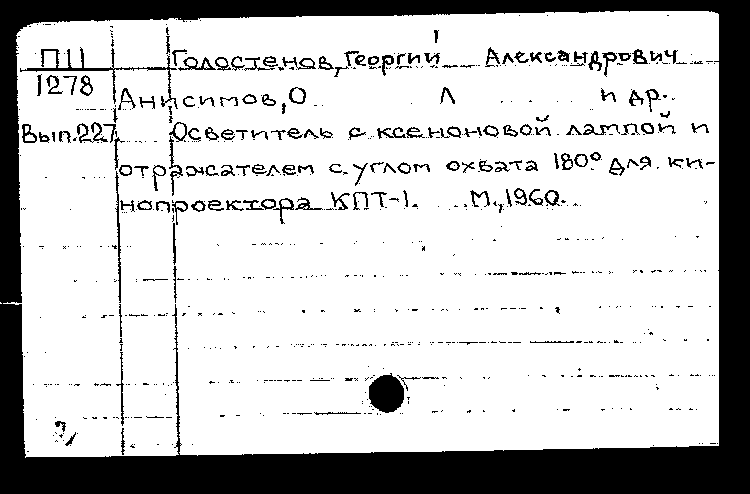 П11 Голостенов, Георгий Александрович
1278
Анисимов, О Л и др.
Вып.227. Осветитель с ксеноновой лампой и
отражателем с углом охвата 180° для ки-
нопроектора КПТ-1. М., 1960.